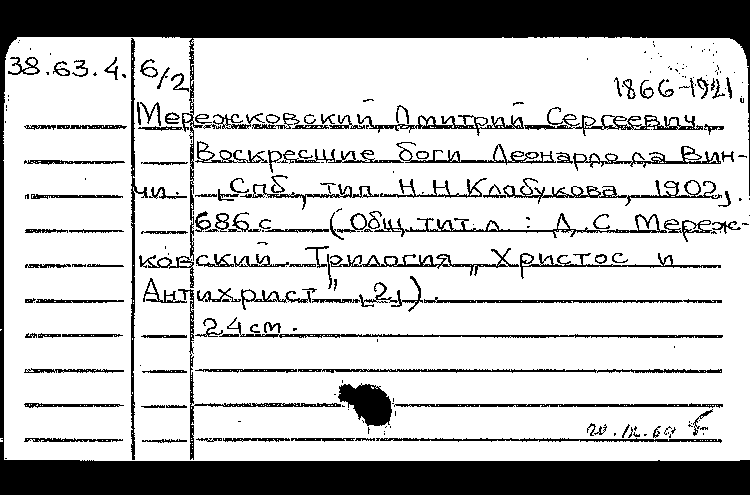 38.63.4. 6/2
1866-1921.
Мережковский Дмитрий Сергеевич.
Воскресшие боги Леонардо да Вин-
чи. [Спб., тип. Н.Н. Клобукова, 1902].
686 с (Общ. тит. л. : Д. С. Мереж-
ковский. Трилогия „Христос и
Антихрист" [2]).
24 см.